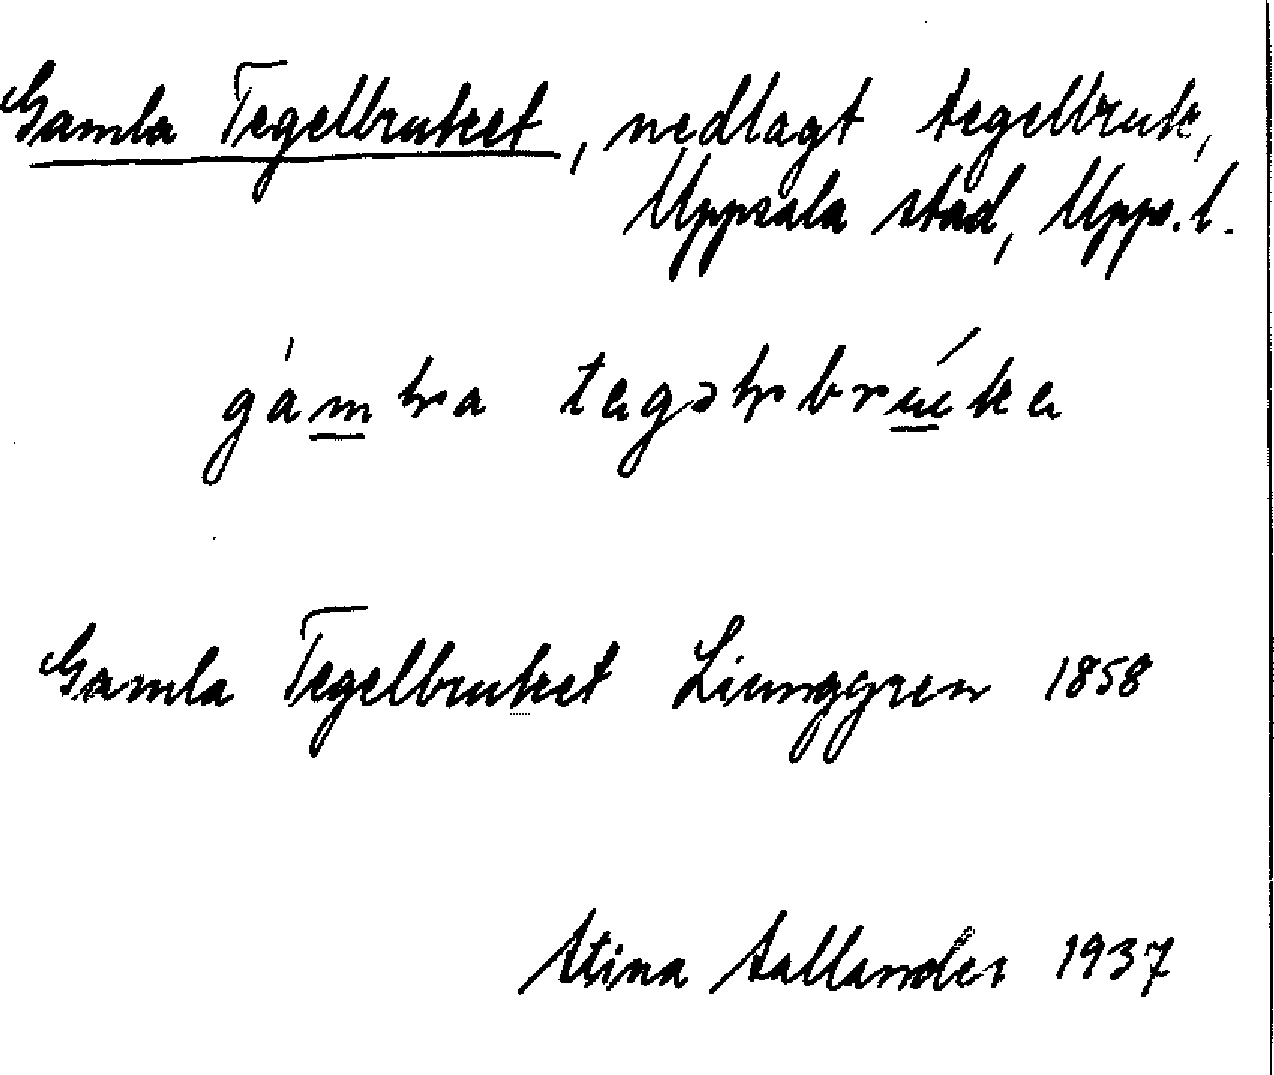 Gamla Tegelbruket, nedlagt tegelbruk,
Uppsala stad, Upps. l.
gamla tegəlbruke
Gamla Tegelbruket Liunggren 1858
Stina Sallander 1937